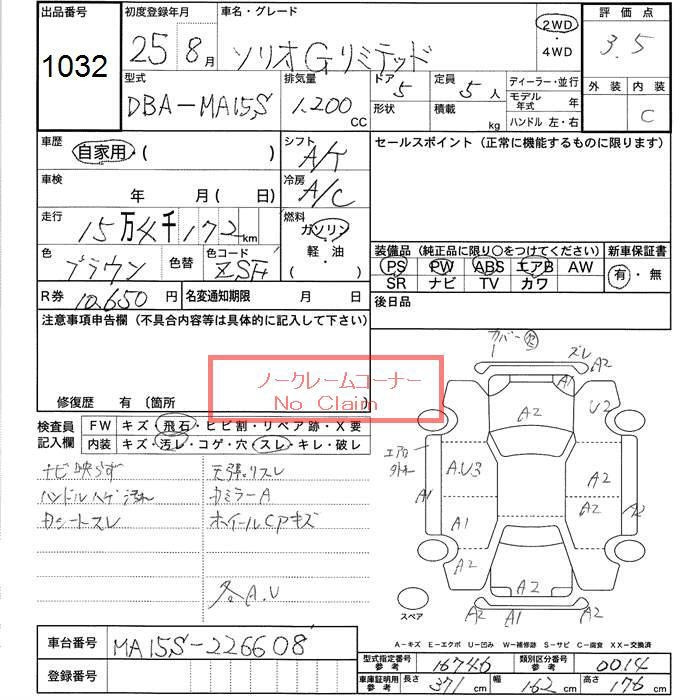 出品番号 初度登録年月 車名・グレード 評価点
1032 25 8月 ソリオGリミテッド 2WD・4WD 3.5
外装 内装
C
型式 排気量 ドア 定員 ディーラー・並行
DBA-MA15S 1,200CC 5 5人 モデル年式 年
形状 積載 kg ハンドル 左・右
車歴 シフト セールスポイント (正常に機能するものに限ります)
自家用・( ) A/T
車検 冷房
年 月(日) A/C
走行 燃料
15万4千172km ガソリン
軽・油
・( )
色 色替 色コード 装備品 (純正品に限り○をつけてください) 新車保証書
ブラウン ZSH PS PW ABS エアB AW 有・無
SR ナビ TV カワ
R券 10,650円 名変通知期限 月 日 後日品
注意事項申告欄 (不具合内容等は具体的に記入して下さい)
ノークレームコーナー
No Claim
修復歴 有 〔箇所
検査員記入欄 FW キズ・飛石・ヒビ割・リペア跡・X要
内装 キズ・汚レ・コゲ・穴・スレ・キレ・破レ
ナビ映らず 天張りスレ
ハンドルハゲ汚れ カミラーA
カシートスレ ホイールCAPキズ
各A.U
カバー
ズレ
A2
A1
A2
U2
エアロ
外れ
A.U3
A2
A1
A1
A2
A2
A2
A2
A2 A1
A2
スペア
A-キズ E-エクボ U-凹み W-補修跡 S-サビ C-腐食 XX-交換済
車台番号 MA15S-226608
型式指定番号参考 16746 類別区分番号参考 0014
登録番号 車庫証明用参考 長さ 371cm 幅 162cm 高さ 176cm